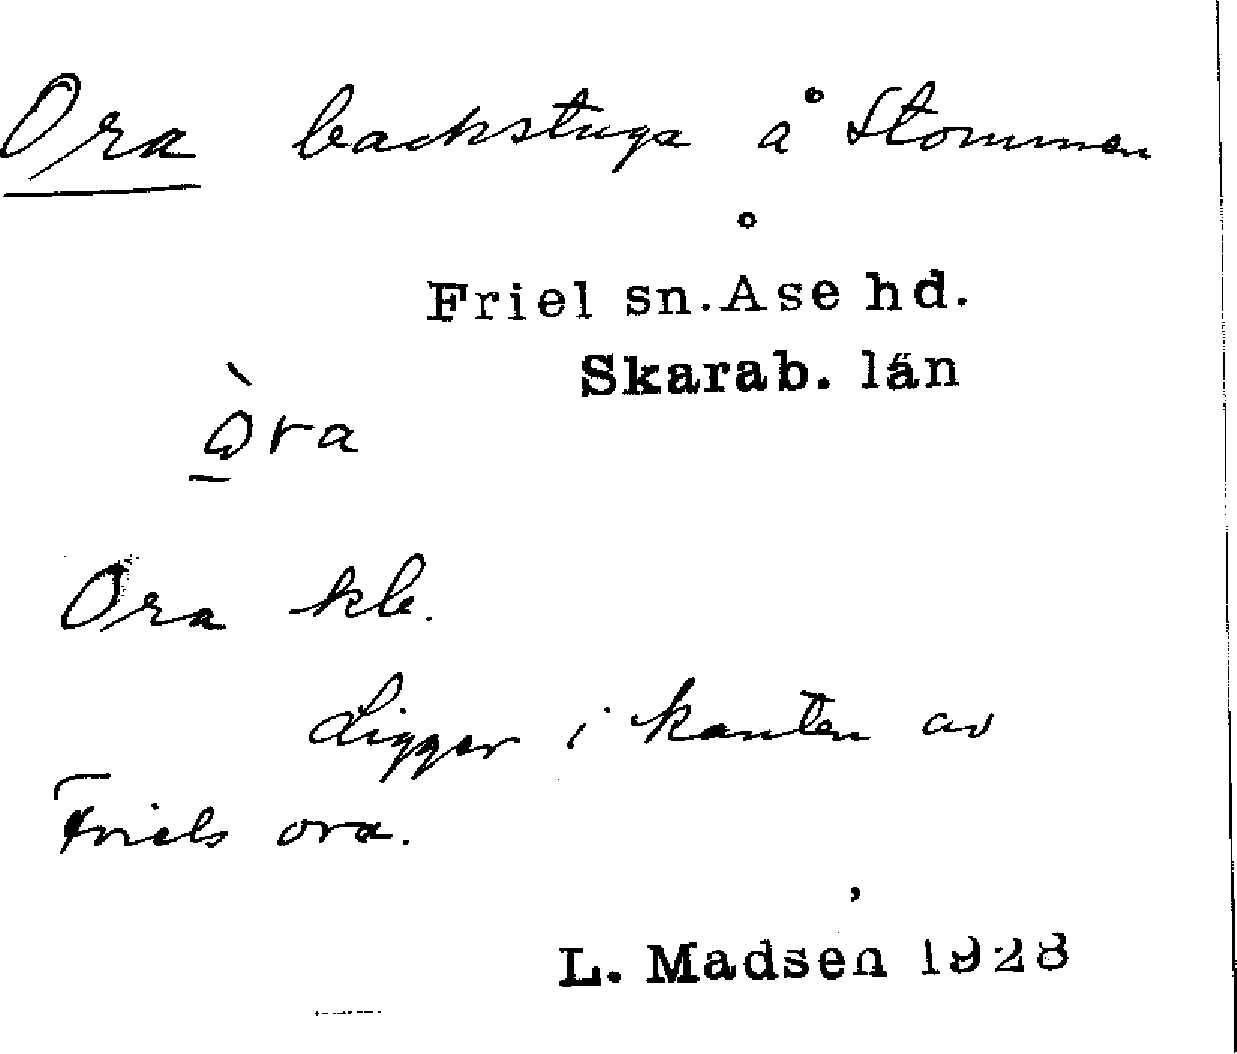 Ora backstuga å Stommen
Friel sn. Åse hd.
Skarab. län
òra
Ora kb.
Ligger i kanten av
Friels ora.
L. Madsen 1928